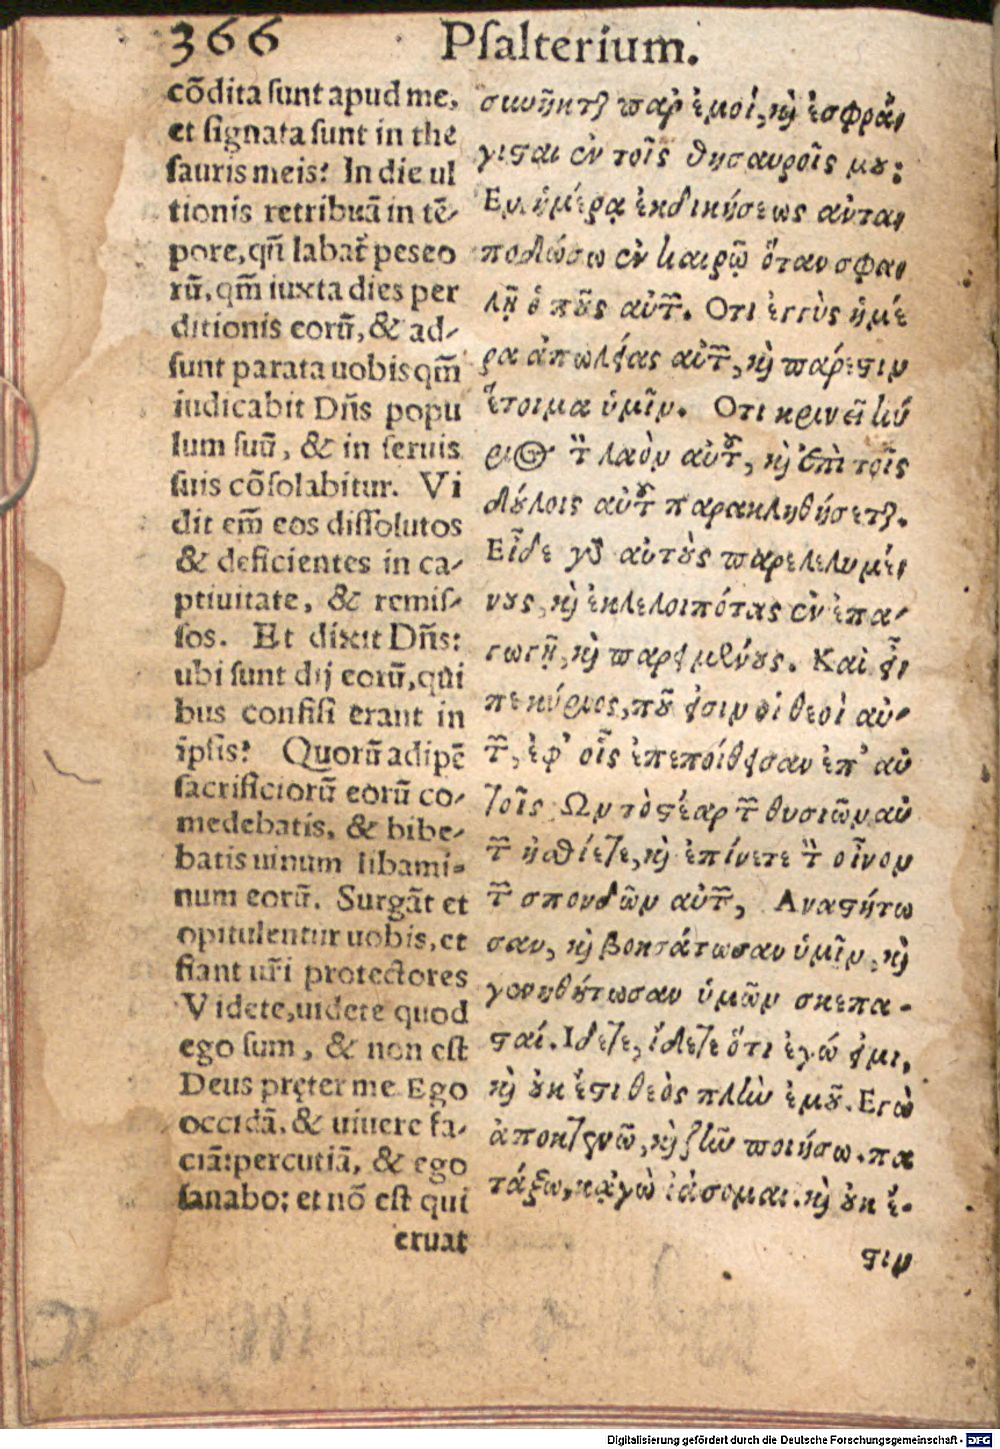 366 Psalterium.
cōdita sunt apud me,
et signata sunt in the
sauris meis? In die ul
tionis retribuā in tē-
pore, qñ labat̃ pes eo
rũ, qm̃ iuxta dies per
ditionis eorũ, & ad-
sunt parata uobis qm̃
iudicabit Dñs popu
lum suũ, & in seruis
suis cõsolabitur. Vi
dit em̃ eos dissolutos
& deficientes in ca-
ptiuitate, & remis-
sos. Et dixit Dñs:
ubi sunt dij eorũ, qui
bus confisi erant in
ipsis? Quorũ adipẽ
sacrificiorũ eorũ co-
medebatis, & bibe-
batis uinum libami-
num eorũ. Surgãt et
opitulentur uobis, et
fiant ur̃i protectores
Videte, uidete quod
ego sum, & non est
Deus pręter me. Ego
occidã, & uiuere fa-
ciã: percutiã, & ego
sanabo: et nõ est qui
eruat
συνῆκται παρ' ἐμοί, καὶ ἐσφρά-
γισαι ἐν τοῖς θησαυροῖς μου;
Εν ἡμέρᾳ ἐκδικήσεως ἀντα-
ποδώσω ἐν καιρῷ ὅταν σφα-
λῇ ὁ ποῦς αὐτῶν. Οτι ἐγγὺς ἡμέ
ρα ἀπωλείας αὐτῶν, καὶ πάρεστιν
ἕτοιμα ὑμῖν. Οτι κρινεῖ κύ
ριος τὸν λαὸν αὐτοῦ, καὶ ἐπὶ τοῖς
δούλοις αὐτοῦ παρακληθήσεται.
Εἶδε γὰρ αὐτοὺς παρελελυμέ-
νους, καὶ ἐκλελοιπότας ἐν ἐπα-
γωγῇ, καὶ παρειμένους. Καὶ εἶ-
πε κύριος, ποῦ εἰσιν οἱ θεοὶ αὐ-
τῶν, ἐφ' οἷς ἐπεποίθεισαν ἐπ' αὐ
τοῖς Ων τὸ στέαρ τῶν θυσιῶν αὐ
τῶν ἠσθίετε, καὶ ἐπίνετε τὸν οἶνον
τῶν σπονδῶν αὐτῶν, Αναστήτω
σαν, καὶ βοησάτωσαν ὑμῖν, καὶ
γονηθύτωσαν ὑμῶν σκεπα-
σταί. Ιδετε, ἴδετε ὅτι ἐγώ εἰμι,
καὶ οὐκ ἔστι θεὸς πλὴν ἐμοῦ. Εγὼ
ἀποκτενῶ, καὶ ζῆν ποιήσω. πα
τάξω, κᾀγὼ ἰάσομαι. καὶ οὐκ ἔ-
στιν
Digitalisierung gefördert durch die Deutsche Forschungsgemeinschaft - DFG